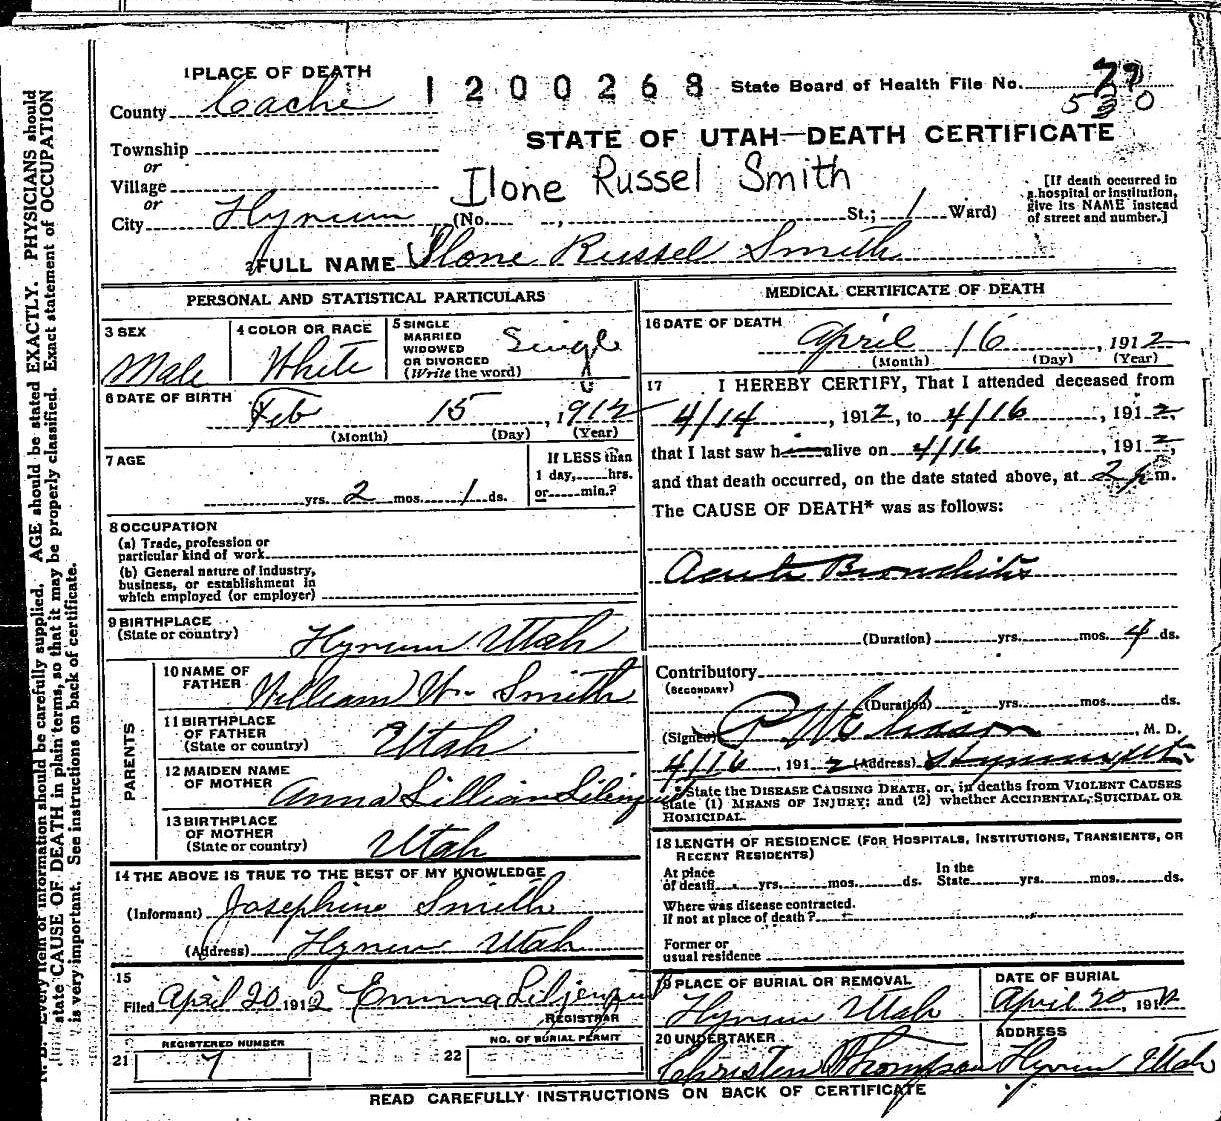 1 PLACE OF DEATH
County Cache
1200268
State Board of Health File No. 77
530
STATE OF UTAH—DEATH CERTIFICATE
Township
or
Village
or
City Hyrum
Ilone Russel Smith
(No. , St.; 1 Ward)
[If death occurred in a hospital or institution, give its NAME instead of street and number.]
2 FULL NAME Ilone Russel Smith
PERSONAL AND STATISTICAL PARTICULARS
3 SEX
Male
4 COLOR OR RACE
White
5 SINGLE
MARRIED
WIDOWED
OR DIVORCED
(Write the word)
Single
6 DATE OF BIRTH
Feb 15, 1912
(Month) (Day) (Year)
7 AGE
yrs. 2 mos. 1 ds.
If LESS than
1 day, hrs.
or min.?
8 OCCUPATION
(a) Trade, profession or
particular kind of work
(b) General nature of industry,
business, or establishment in
which employed (or employer)
9 BIRTHPLACE
(State or country)
Hyrum Utah
PARENTS
10 NAME OF
FATHER
William W. Smith
11 BIRTHPLACE
OF FATHER
(State or country)
Utah
12 MAIDEN NAME
OF MOTHER
Anna Lillian
13 BIRTHPLACE
OF MOTHER
(State or country)
Utah
14 THE ABOVE IS TRUE TO THE BEST OF MY KNOWLEDGE
(Informant) Josephine Smith
(Address) Hyrum Utah
15
Filed April 20 1912 Emma Liljenquist
REGISTRAR
21 REGISTERED NUMBER
7
22 NO. OF BURIAL PERMIT
MEDICAL CERTIFICATE OF DEATH
16 DATE OF DEATH
April 16, 1912
(Month) (Day) (Year)
17 I HEREBY CERTIFY, That I attended deceased from
4/14, 1912, to 4/16, 1912
that I last saw him alive on 4/16, 1912,
and that death occurred, on the date stated above, at 2 p m.
The CAUSE OF DEATH* was as follows:
Acute Bronchitis
(Duration) yrs. mos. 4 ds.
Contributory
(SECONDARY)
(Duration) yrs. mos. ds.
(Signed) M. D.
4/16, 1912 (Address)
*State the DISEASE CAUSING DEATH, or, in deaths from VIOLENT CAUSES
state (1) MEANS OF INJURY; and (2) whether ACCIDENTAL, SUICIDAL OR
HOMICIDAL.
18 LENGTH OF RESIDENCE (FOR HOSPITALS, INSTITUTIONS, TRANSIENTS, OR
RECENT RESIDENTS)
At place
of death yrs. mos. ds.
In the
State yrs. mos. ds.
Where was disease contracted,
If not at place of death?
Former or
usual residence
19 PLACE OF BURIAL OR REMOVAL
Hyrum Utah
DATE OF BURIAL
April 20, 1912
20 UNDERTAKER
Christen Thompson
ADDRESS
Hyrum Utah
READ CAREFULLY INSTRUCTIONS ON BACK OF CERTIFICATE
N. B. Every item of information should be carefully supplied. AGE should be stated EXACTLY. PHYSICIANS should
state CAUSE OF DEATH in plain terms, so that it may be properly classified. Exact statement of OCCUPATION
is very important. See instructions on back of certificate.